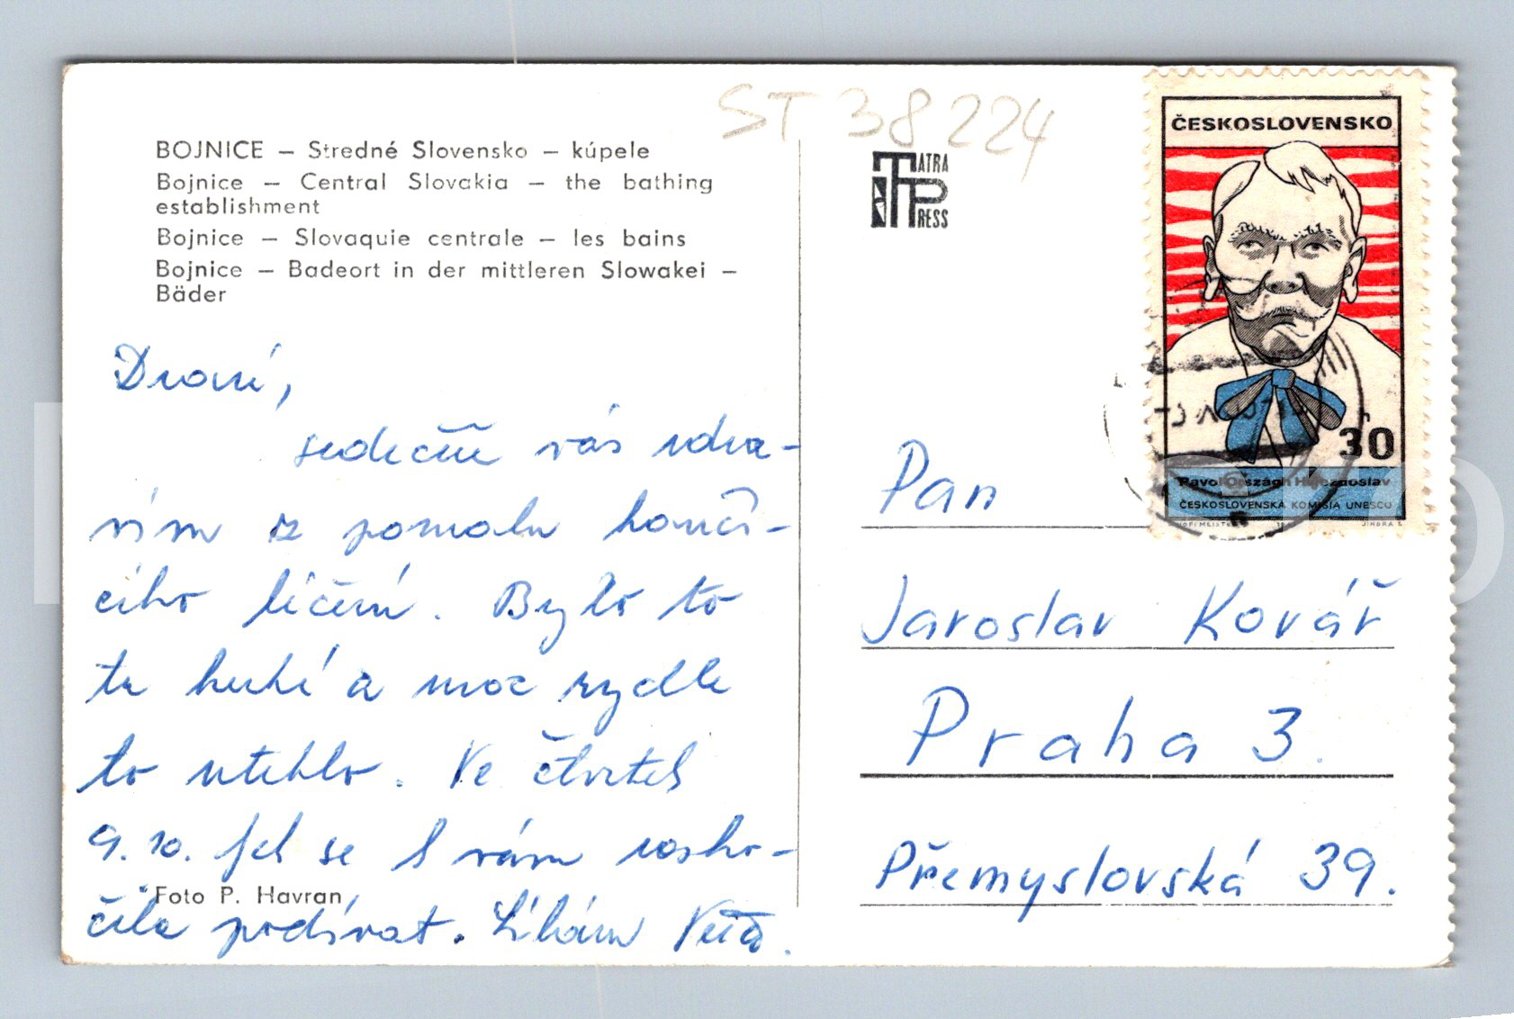 ST 38224
BOJNICE – Stredné Slovensko – kúpele
Bojnice – Central Slovakia – the bathing
establishment
Bojnice – Slovaquie centrale – les bains
Bojnice – Badeort in der mittleren Slowakei –
Bäder
TATRA
PRESS
ČESKOSLOVENSKO
30
Pavol Országh Hviezdoslav
ČESKOSLOVENSKÁ KOMISIA UNESCO
JINDRA S.
Drazí,
srdečně vás zdra-
vím z pomalu končí-
cího léčení. Bylo to
tu hezké a moc rychle
to uteklo. Ve čtvrtek
9.10. se k vám
podívat. Líbám
Foto P. Havran
Pan
Jaroslav Kovář
Praha 3.
Přemyslovská 39.